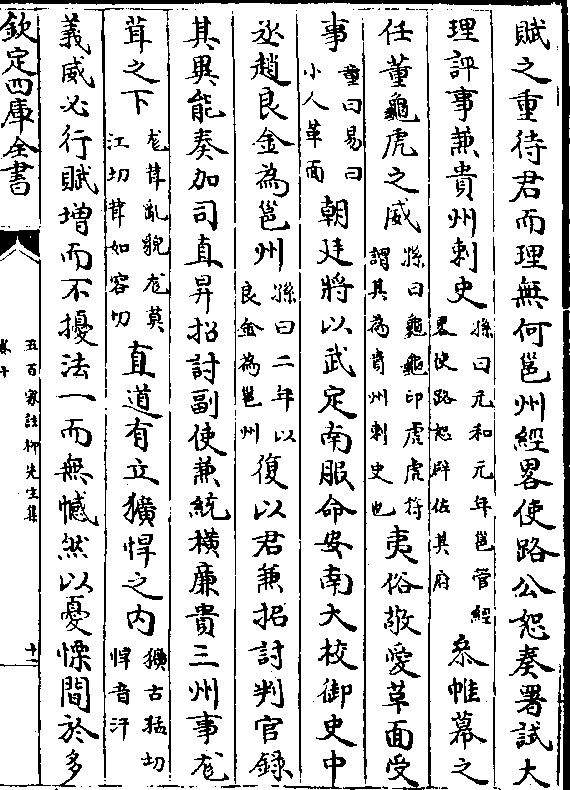 賦之重待君而理無何邕州經畧使路公恕奏署試大
理評事兼貴州刺史孫曰元和元年邕管經畧使路恕辟佐其府叅帷幕之
任董龜虎之威孫曰龜龜印虎虎符謂其為貴州刺史也夷俗敬愛革面受
事童曰易曰小人革面朝廷將以武定南服命安南大校御史中
丞趙良金為邕州孫曰二年以良金為邕州復以君兼招討判官錄
其異能奏加司直昇招討副使兼統橫廉貴三州事尨
茸之下尨茸亂貌尨莫江切茸如容切直道有立獷悍之內獷古猛切悍音汗
義威必行賦增而不擾法一而無憾然以憂慄間於多
欽定四庫全書
五百家註柳先生集
卷十
十二